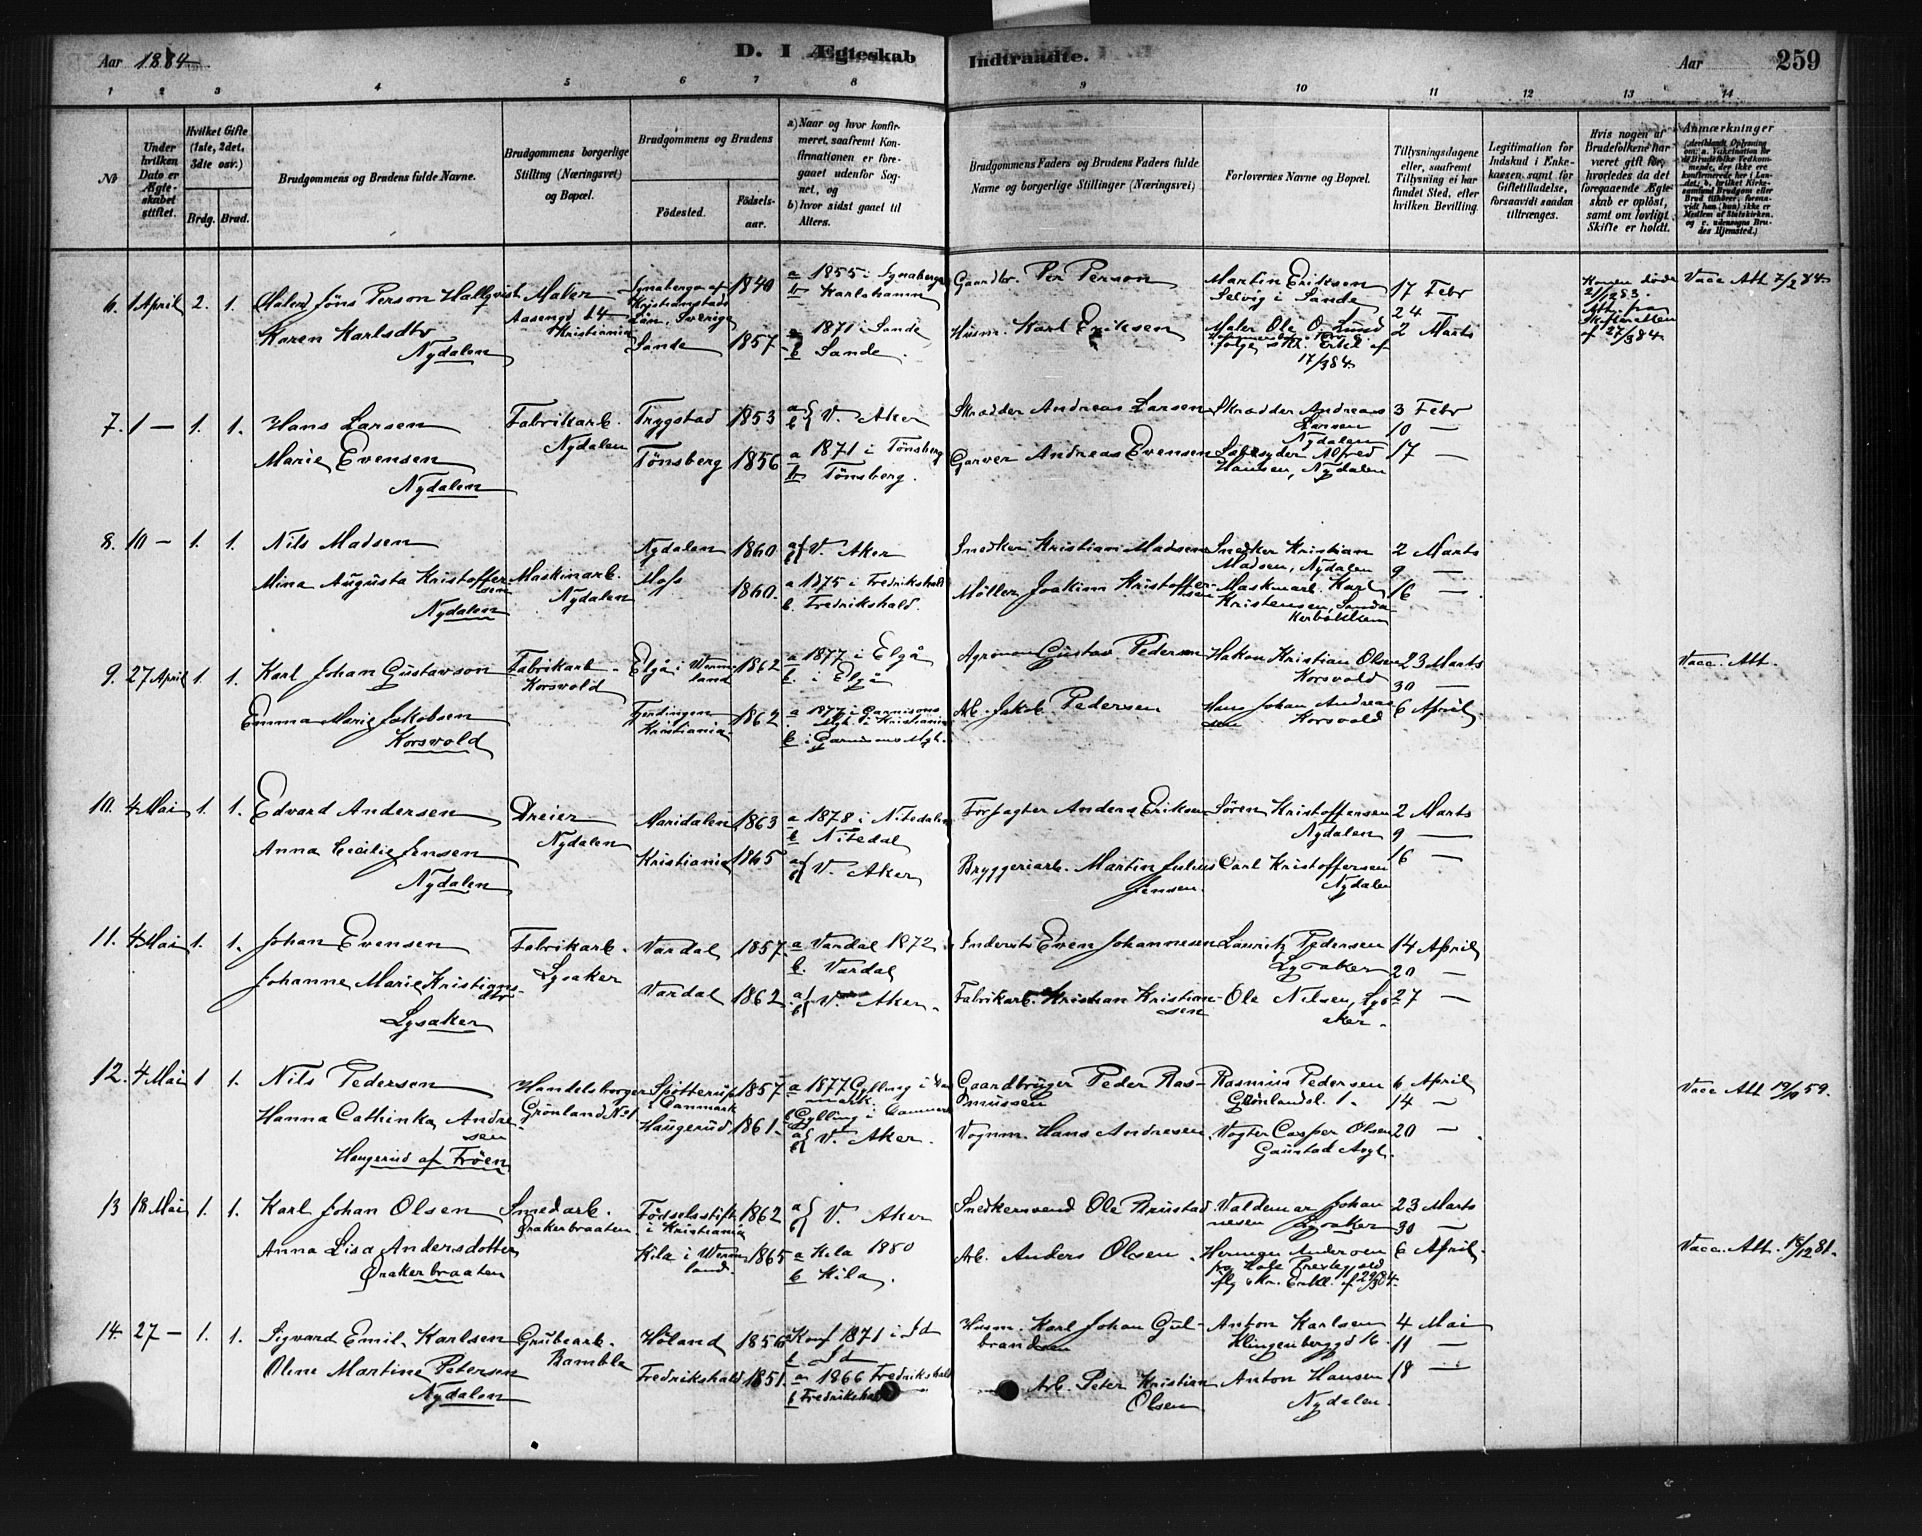 Aar 1884. D. I Ægteskab Indtraadte. Aar 259
1 2 3 4 5 6 7 8 9 10 11 12 13 14
No
Under hvilken Dato er Ægteskabet stiftet.
Hvilket Gifte (1ste, 2det, 3die osv.)
Brdg. Brud.
Brudgommens og Brudens fulde Navne.
Brudgommens borgerlige Stilling (Næringsvei) og Bopæl.
Brudgommens og Brudens
Födested. Födselsaar.
a) Naar og hvor konfirmeret, saafremt Konfirmationen er foregaaet udenfor Sognet, og
b) hvor sidst gaaet til Alters.
Brudgommens Faders og Brudens Faders fulde Navne og borgerlige Stillinger (Næringsvei)
Forlovernes Navne og Bopæl.
Tillysningsdagene eller, saafremt Tillysning ei har fundet Sted, efter hvilken Bevilling.
Legitimation for Indskud i Enkekassen samt for Giftetilladelse, forsaavidt saadan tiltrænges.
Hvis nogen af Brudefolkene har været gift för, hvorledes da det foregaaende Ægteskab er oplöst, samt om lovligt Skifte er holdt.
Anmærkninger
6. 1 April 2. 1. Jöns Person Hallqvist Maler 1840 a 1855 i Gaardbr. Per Person Martin Eriksen 17 Febr Vacc. Att. 7/2 84.
Aasengd 14 Kristianstads b Karlshamn Selvig i Sande 24
Karen Karlsdtr Kristiania Län, Sverige 1871 i Sande Husm. Karl Eriksen Maler Ole O. Lund 2 Marts
Nydalen Sande 1857 b Sande. 17/3 84.
Konen döde 21/12 83. Att. fra Skifteretten af 27/3 84.
7. 1 — 1. 1. Hans Larsen Fabrikarb. Trygstad 1853 a b V. Aker Skrædder Andreas Larsen Skrædder Andreas Larsen 3 Febr
Nydalen Nydalen 10 —
Marie Evensen Tönsberg 1856 a 1871 i Tönsberg Garver Andreas Evensen Alfred 17 —
Nydalen b Tönsberg. Hansen, Nydalen
8. 10 — 1. 1. Nils Madsen Nydalen 1860 a b V. Aker Snedker Kristian Madsen Snedker Kristian 2 Marts
Madsen, Nydalen 9 —
Mina Augusta Kristoffersen Maskinarb. Moss 1860. a 1875 i Fredrikshald Möller Joakim Kristoffersen Maskinarb. Karl 16 —
Nydalen Nydalen b Fredrikshald. Kristensen, Sandakerbakken
9. 27 April 1. 1. Karl Johan Gustavson Fabrikarb. Elgå i Wermland 1862 a 1877 i Elgå Agronom Gustav Pederson Hakon Kristian Olsen 23 Marts Vacc. Att.
Korsvold b. i Elgå Korsvold 30 —
Emma Marie Jakobsen Fjerdingen Kristiania 1862 a 1877 i Garnisons Mgh. i Kristiania Arb. Jakob Pedersen Hans Johan Andreassen 6 April
Korsvold b. i Garnisons Mgh. Korsvold
10. 4 Mai 1. 1. Edvard Andersen Dreier Maridalen 1863 a 1878 i Nitedalen Forpagter Anders Eriksen Sören Kristoffersen 2 Marts
Nydalen b Nitedal Nydalen 9 —
Anna Cecilie Jensen Kristiania 1865 a b V. Aker Bryggeriarb. Martin Julius Jensen. Carl Kristoffersen 16 —
Nydalen Nydalen
11. 4 Mai 1. 1. Johan Evensen Fabrikarb. Vardal 1857. a Vardal 1872 Inderst Even Johannesen Lauritz Pedersen 14 April
Lysaker b. Vardal Lysaker 20 —
Johanne Marie Kristiansdtr Vardal 1862. a b V. Aker. Fabrikarb. Kristian Kristiansen Ole Nilsen, Lysaker. 27 —
Lysaker
12. 4 Mai 1 1. Nils Pedersen Handelsborger Spötterup i Danmark 1857 a 1877 Gylling i Danmark Gaardbruger Peder Rasmussen Rasmus Pedersen 6 April Vacc. Att. 19/10 59.
Grönland No 1 b Gylling i Danmark Grönlandsl. 1. 14 —
Hanna Cathinka Andresen Haugerud 1861. a b V. Aker. Vognm. Hans Andresen. Vogter Casper Olsen 20 —
Haugerud af Fröen Gaustad Asyl.
13 18 Mai 1. 1. Karl Johan Olsen Smedarb. Födselsstift. i Kristiania 1862 a b V. Aker Snedkersvend Ole Brustad Valdemar Johannesen 23 Marts
Örakerbraaten Lysaker 30 —
Anna Lisa Andersdotter Kila i Wermland. 1865 a Kila 1880 Arb. Anders Olsen. Herman Andersen 6 April. Vacc. Att. 16/12 81.
Örakerbraaten b Kila.
14. 27 — 1. 1. Sigvard Emil Karlsen Grubearb. Höland 1856 Konf 1871 i Id Husm. Karl Johan Gulbrandsen Anton Karlsen 4 Mai
Bamble b Id Klingenberggd 16. 11 —
Oline Martine Petersen Fredrikshald 1851. a 1866 Fredrikshald Arb. Peter Kristian Olsen Anton Hansen 18 —
Nydalen b Fredrikshald Nydalen.